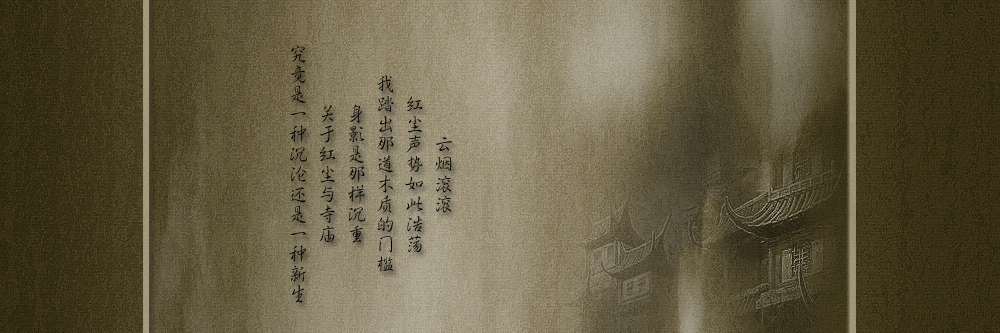 云烟滚滚
红尘声势如此浩荡
我踏出那道木质的门槛
身影是那样沉重
关于红尘与寺庙
究竟是一种沉沦还是一种新生